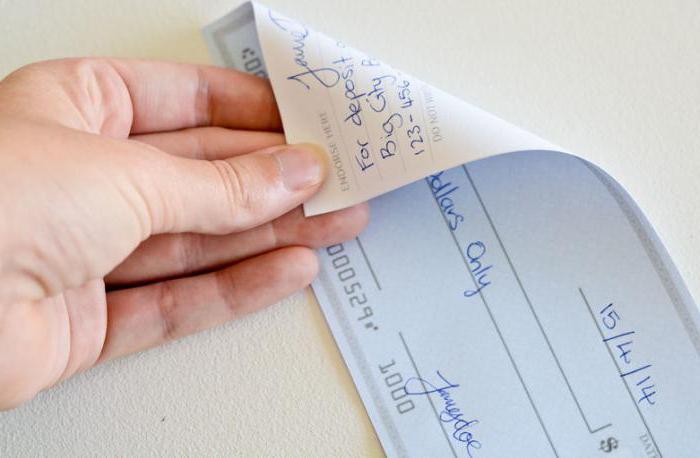 ENDORSE HERE
For deposit
Big City
123-456
DO NOT
Dollars Only
15/4/14
$
000529
1000
Janesdoe